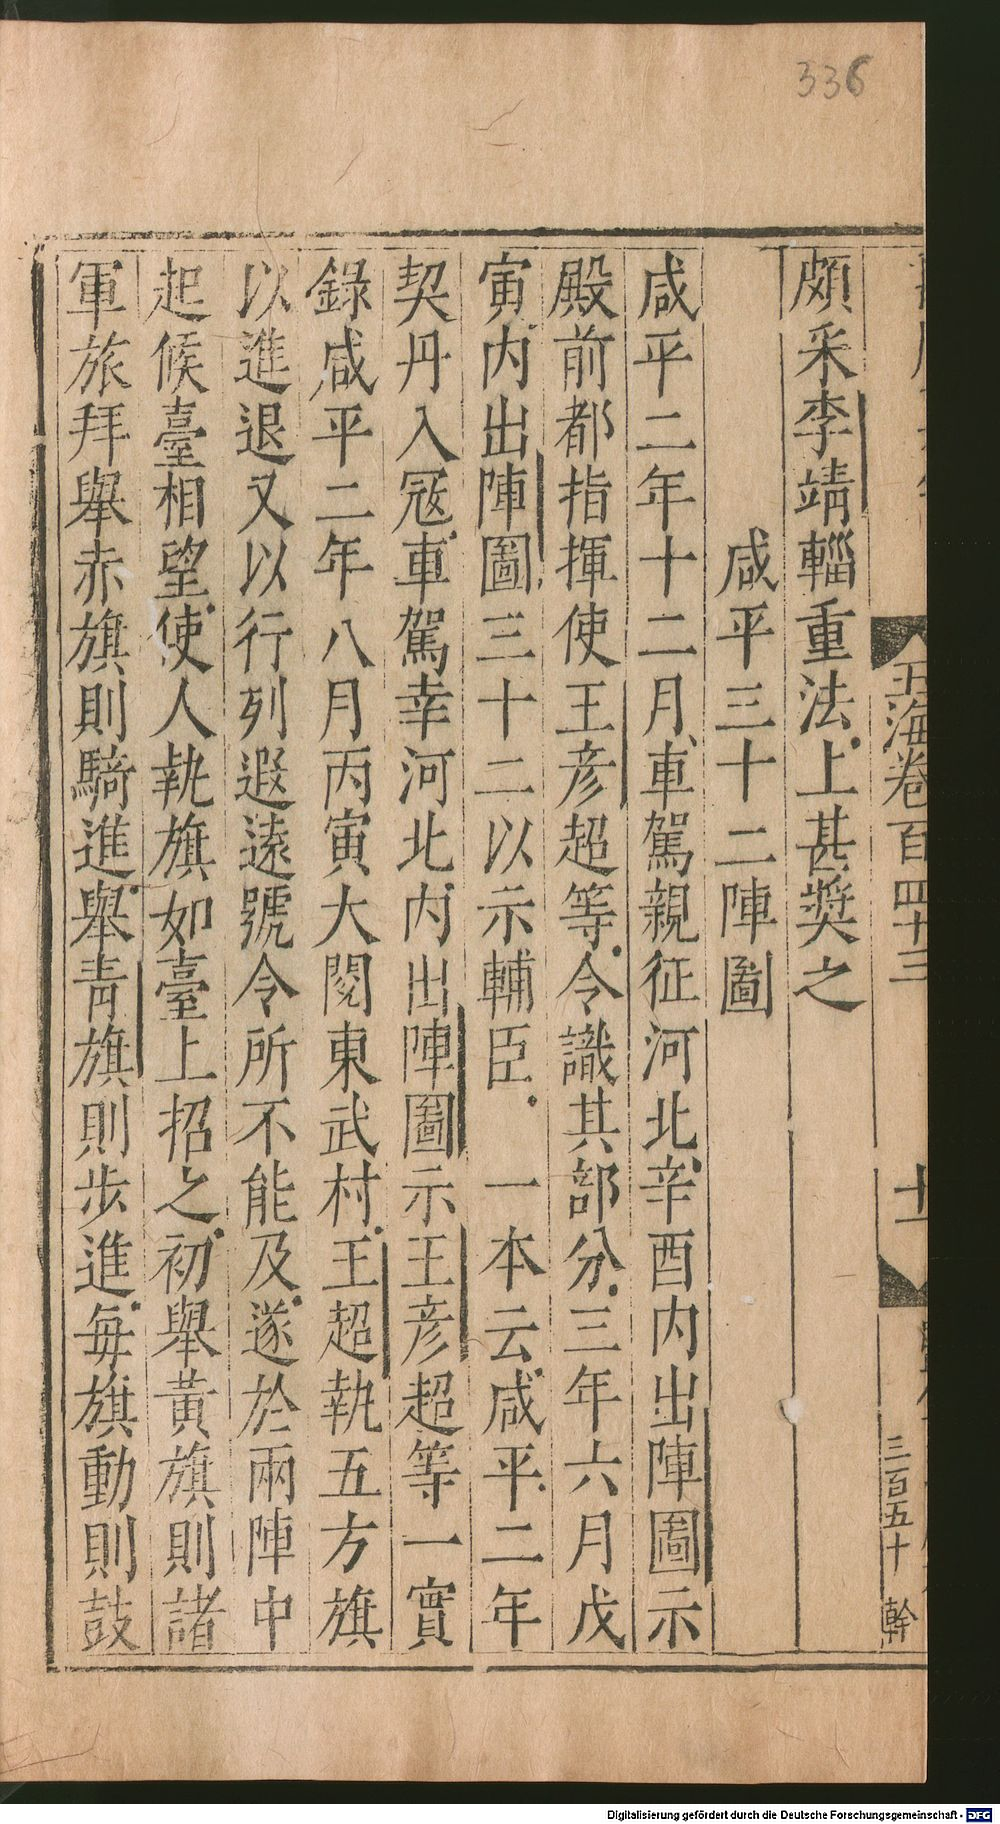 336
玉海卷百四十三
十一
三百五十
幹
頗采李靖輜重法上甚奬之
咸平三十二陣圖
咸平二年十二月車駕親征河北辛酉内出陣圖示
殿前都指揮使王彦超等令識其部分三年六月戊
寅内出陣圖三十二以示輔臣 一本云咸平二年
契丹入冦車駕幸河北内出陣圖示王彦超等一實
錄咸平二年八月丙寅大閱東武村王超執五方旗
以進退又以行列遐遠號令所不能及遂於兩陣中
起候臺相望使人執旗如臺上招之初舉黃旗則諸
軍旅拜舉赤旗則騎進舉靑旗則步進每旗動則鼓
Digitalisierung gefördert durch die Deutsche Forschungsgemeinschaft - DFG